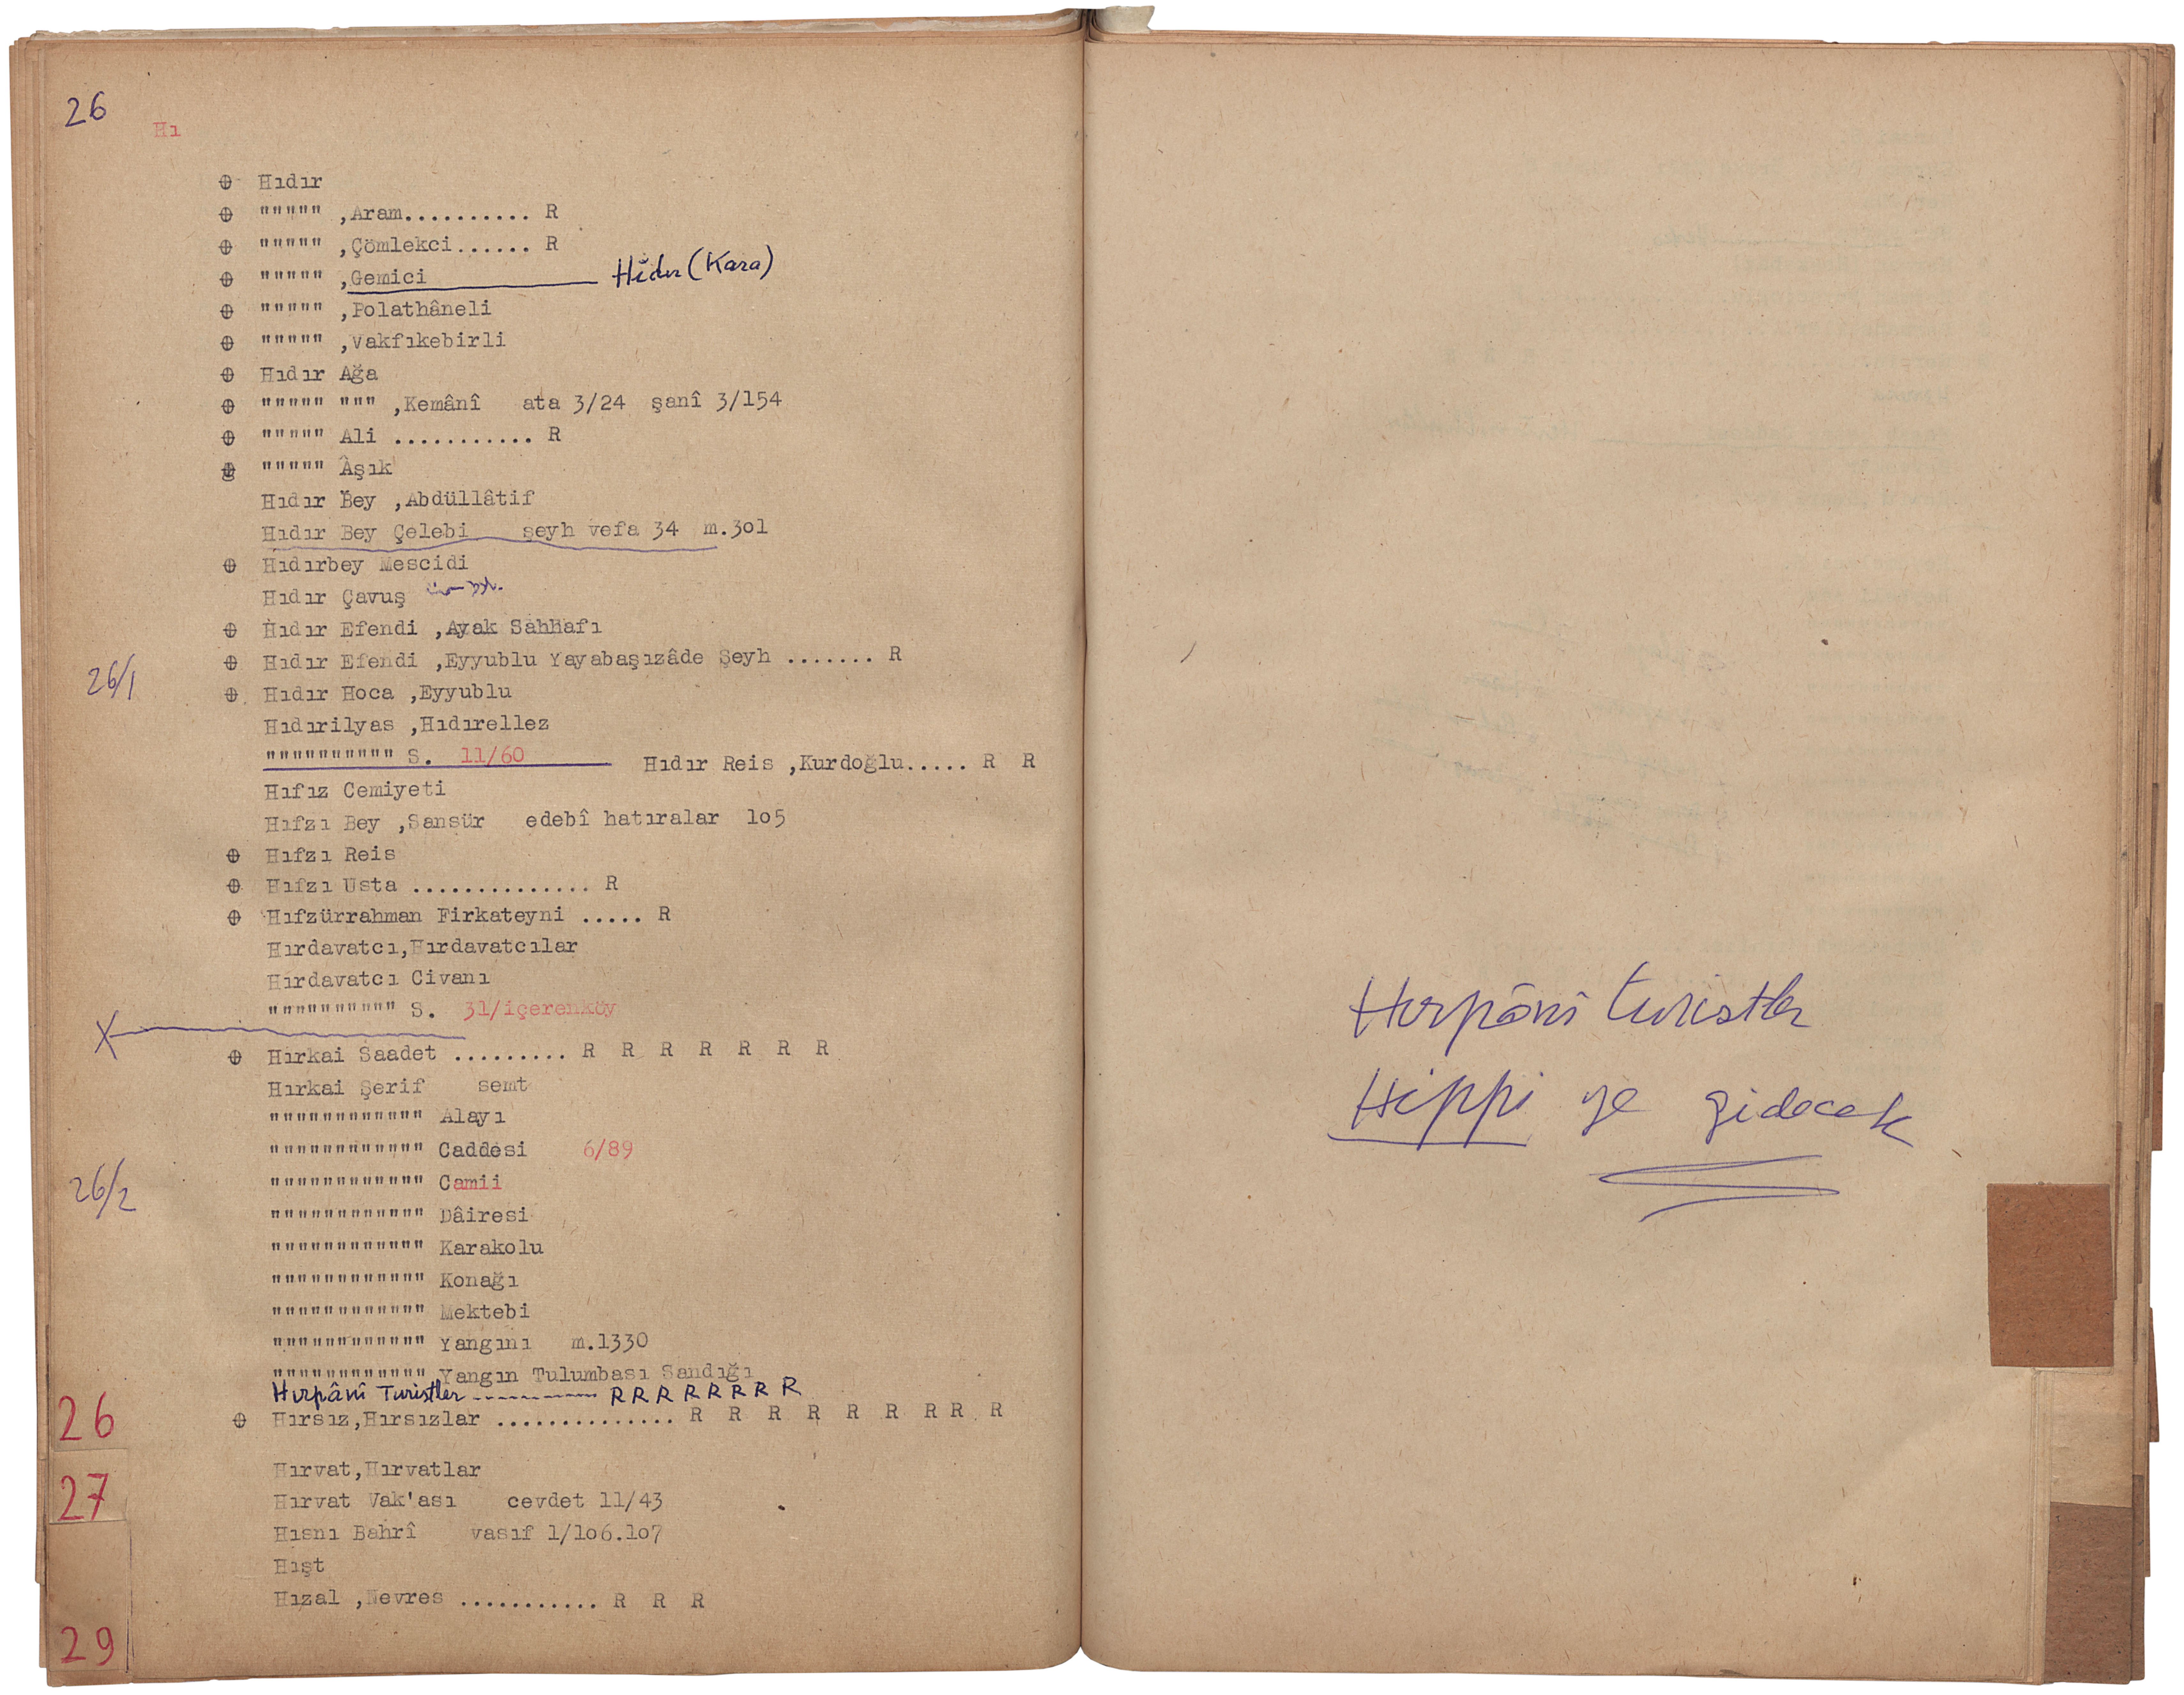 26
Hı
⊕ Hıdır
⊕ """"" ,Aram.......... R
⊕ """"" ,Çömlekci...... R
⊕ """"" ,Gemici Hıdır (Kara)
⊕ """"" ,Polathâneli
⊕ """"" ,Vakfıkebirli
⊕ Hıdır Ağa
⊕ """"" """ ,Kemânî ata 3/24 şanî 3/154
⊕ """"" Ali ........... R
⊕ """"" Âşık
Hıdır Bey ,Abdüllâtif
Hıdır Bey Çelebi şeyh vefa 34 m.3o1
⊕ Hıdırbey Mescidi
Hıdır Çavuş
⊕ Hıdır Efendi ,Ayak Sahhafı
⊕ Hıdır Efendi ,Eyyublu Yayabaşızâde Şeyh ....... R
26/1
⊕ Hıdır Hoca ,Eyyublu
Hıdırilyas ,Hıdırellez
"""""""""" S. 11/60 Hıdır Reis ,Kurdoğlu..... R R
Hıfız Cemiyeti
Hıfzı Bey ,Sansür edebî hatıralar 1o5
⊕ Hıfzı Reis
⊕ Hıfzı Usta .............. R
⊕ Hıfzürrahman Firkateyni ..... R
Hırdavatcı,Hırdavatcılar
Hırdavatcı Civanı
"""""""""" S. 31/içerenköy
X
⊕ Hırkai Saadet ......... R R R R R R R
Hırkai Şerif semt
"""""""""""" Alayı
"""""""""""" Caddesi 6/89
"""""""""""" Camii
26/2
"""""""""""" Dâiresi
"""""""""""" Karakolu
"""""""""""" Konağı
"""""""""""" Mektebi
"""""""""""" Yangını m.1330
"""""""""""" Yangın Tulumbası Sandığı
Hırpânî Turistler ---------- R R R R R R R R
⊕ Hırsız,Hırsızlar .............. R R R R R R R R R
26
Hırvat,Hırvatlar
Hırvat Vak'ası cevdet 11/43
27
Hısnı Bahrî vasıf 1/1o6.1o7
Hışt
Hızal ,Nevres ........... R R R
29
Hırpânî turistler
Hippi ye gidecek